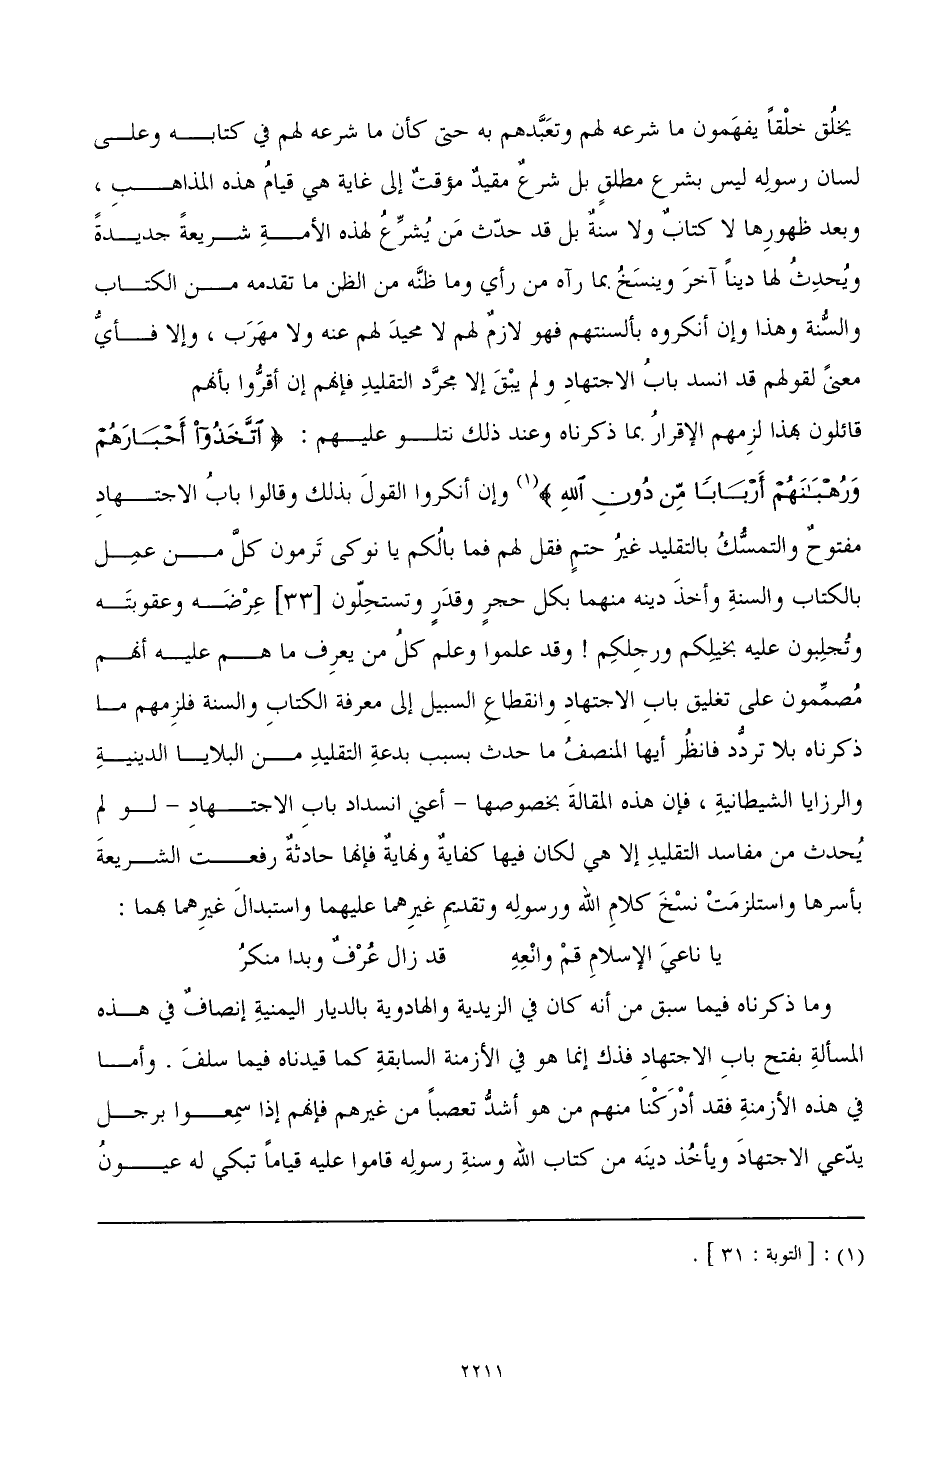 يخلُق خلْقاً يفهَمون ما شرعه لهم وتعَبَّدهم به حتى كأن ما شرعه لهم في كتابه وعلى
لسان رسولِه ليس بشرع مطلقٍ بل شرعٌ مقيدٌ مؤقتٌ إلى غاية هي قيامُ هذه المذاهب ،
وبعد ظهورِها لا كتابٌ ولا سنةٌ بل قد حدّث مَن يُشرِّعُ لهذه الأمةِ شريعةً جديدةً
ويُحدِثُ لها ديناً آخرَ وينسَخُ بما رآه من رأي وما ظنَّه من الظن ما تقدمه من الكتاب
والسُّنة وهذا وإن أنكروه بألسنتهم فهو لازمٌ لهم لا محيدَ لهم عنه ولا مهَرَب ، وإلا فأيُّ
معنىً لقولهم قد انسد بابُ الاجتهادِ ولم يبْقَ إلا مجرَّد التقليدِ فإنهم إن أقرُّوا بأنهم
قائلون بهذا لزِمهم الإقرارُ بما ذكرناه وعند ذلك نتلو عليهم : ﴿ ٱتَّخَذُوٓاْ أَحْبَارَهُمْ
وَرُهْبَـٰنَهُمْ أَرْبَابًا مِّن دُونِ ٱللهِ ﴾(١) وإن أنكروا القولَ بذلك وقالوا بابُ الاجتهادِ
مفتوحٌ والتمسُّكُ بالتقليد غيرُ حتمٍ فقل لهم فما بالُكم يا نوكى تَرمون كلَّ من عمِل
بالكتاب والسنةِ وأخذَ دينه منهما بكل حجرٍ وقدَرٍ وتستحلّون [٣٣] عِرْضَه وعقوبتَه
وتُجلِبون عليه بخيلِكم ورجلِكم ! وقد علموا وعلم كلُّ من يعرِف ما هم عليه أنهم
مُصمِّمون على تغليق بابِ الاجتهادِ وانقطاعِ السبيل إلى معرفة الكتابِ والسنة فلزِمهم ما
ذكرناه بلا تردُّد فانظُر أيها المنصفُ ما حدث بسببِ بدعةِ التقليدِ من البلايا الدينيةِ
والرزايا الشيطانيةِ ، فإن هذه المقالةَ بخصوصها - أعني انسداد بابِ الاجتهادِ - لو لم
يُحدث من مفاسد التقليدِ إلا هي لكان فيها كفايةٌ ونهايةٌ فإنها حادثةٌ رفعت الشريعةَ
بأسرها واستلزمَتْ نسْخَ كلامِ الله ورسولِه وتقديمِ غيرِهما عليهما واستبدالَ غيرِهما بهما :
يا ناعيَ الإسلامِ قمْ وانْعِهِ قد زال عُرْفٌ وبدا منكرُ
وما ذكرناه فيما سبق من أنه كان في الزيدية والهادوية بالديار اليمنيةِ إنصافٌ في هذه
المسألةِ بفتح بابِ الاجتهادِ فذك إنما هو في الأزمنة السابقةِ كما قيدناه فيما سلفَ . وأما
في هذه الأزمنةِ فقد أدْرَكْنا منهم من هو أشدُّ تعصباً من غيرهم فإنهم إذا سمِعوا برجل
يدّعي الاجتهادَ ويأخُذ دينَه من كتاب الله وسنةِ رسولِه قاموا عليه قياماً تبكي له عيونُ
(١) : [ التوبة : ٣١ ] .
٢٢١١